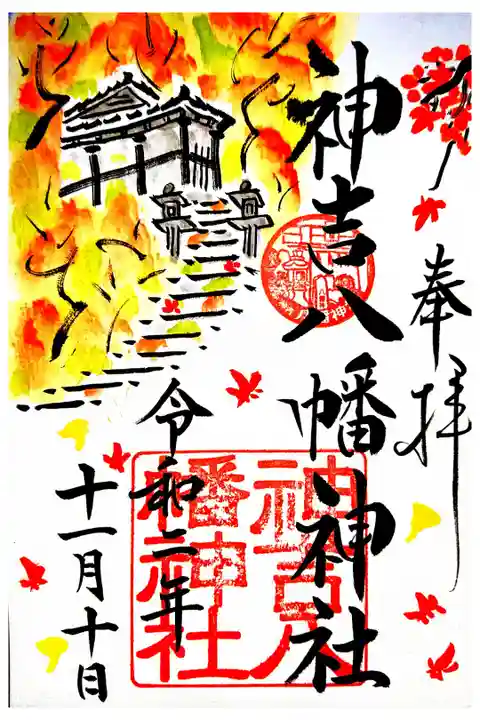 奉拝
神吉八幡神社
神吉八
幡神社
令和二年
十一月十日